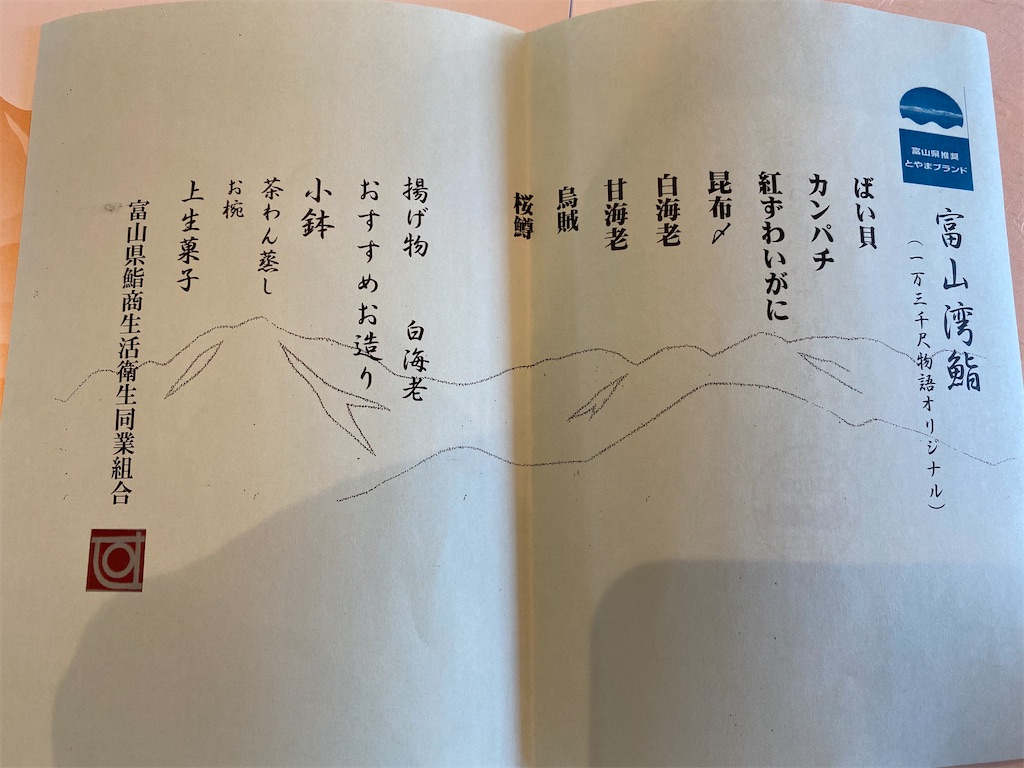 富山県推奨
とやまブランド
富山湾鮨
(一万三千尺物語オリジナル)
ばい貝
カンパチ
紅ずわいがに
昆布〆
白海老
甘海老
烏賊
桜鱒
揚げ物 白海老
おすすめお造り
小鉢
茶わん蒸し
お椀
上生菓子
富山県鮨商生活衛生同業組合